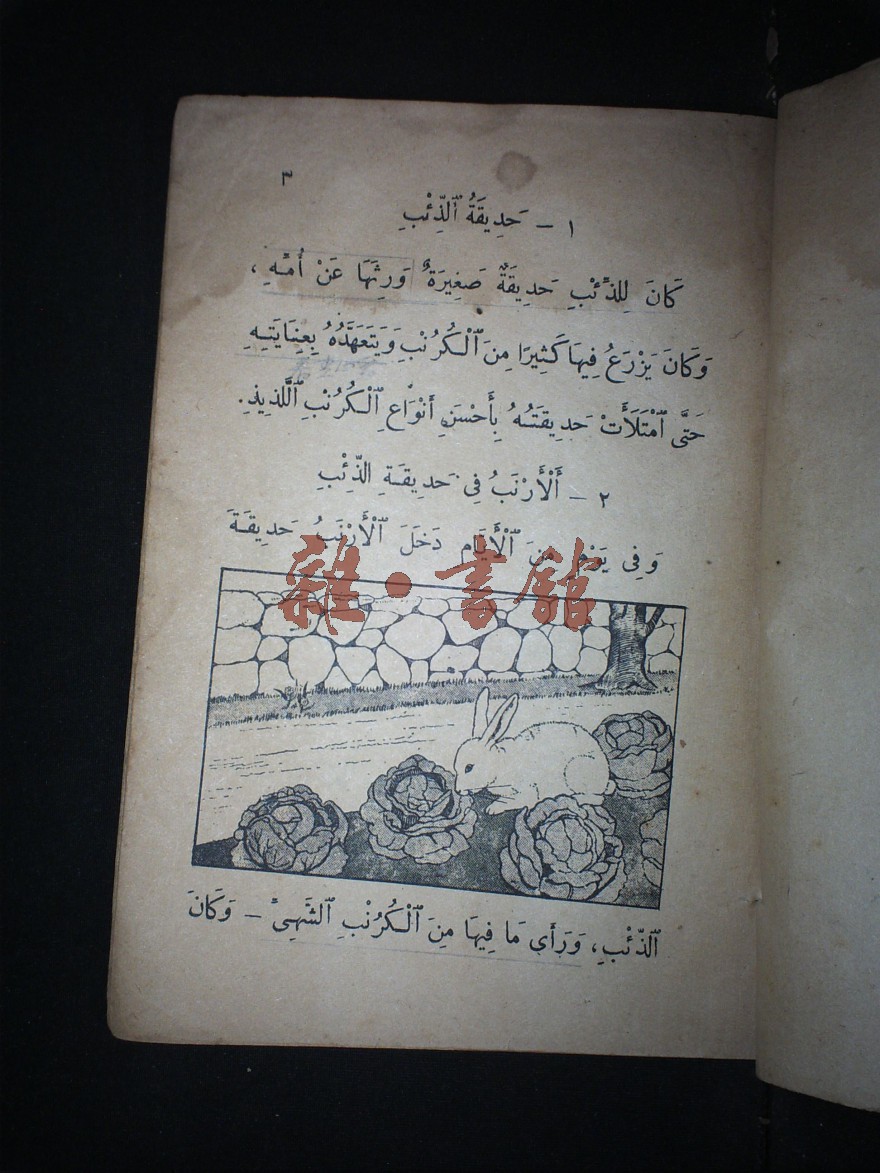 ٣
١ - حَدِيقَةُ ٱلذِّئْبِ
كَانَ لِلذِّئْبِ حَدِيقَةٌ صَغِيرَةٌ وَرِثَهَا عَنْ أُمِّهِ ،
وَكَانَ يَزْرَعُ فِيهَا كَثِيرًا مِنَ ٱلْكُرُنْبِ وَيَتَعَهَّدُهُ بِعِنَايَتِهِ
حَتَّى ٱمْتَلَأَتْ حَدِيقَتُهُ بِأَحْسَنِ أَنْوَاعِ ٱلْكُرُنْبِ ٱللَّذِيذِ.
٢ - أَلْأَرْنَبُ فِى حَدِيقَةِ الذِّئْبِ
وَفِى يَوْمٍ مِنَ ٱلْأَيَّامِ دَخَلَ ٱلْأَرْنَبُ حَدِيقَةَ
雜·書館
ٱلذِّئْبِ، وَرَأَى مَا فِيهَا مِنَ ٱلْكُرُنْبِ ٱلشَّهِىِّ - وَكَانَ